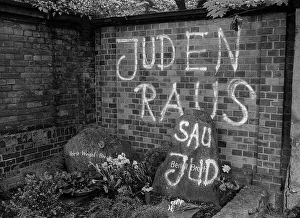 JUDEN
RAUS
SAU
JUD